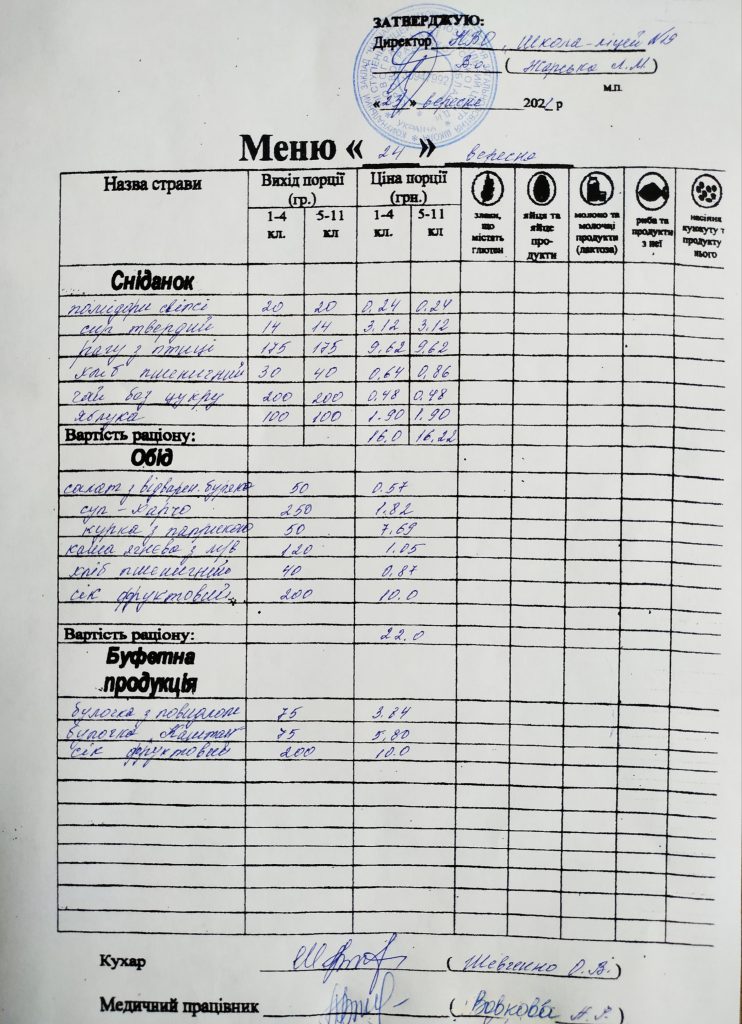 ЗАТВЕРДЖУЮ:
Директор НВО, Школа-ліцей №19
В.о. ( Жарська Л.М. )
м.п.
« 23 » вересня 2021 р
Меню « 24 » вересня
Назва страви Вихід порції (гр.) Ціна порції (грн.)
1-4 кл. 5-11 кл 1-4 кл. 5-11 кл
злаки, що містять глютен
яйця та яйце продукти
молоко та молочні продукти (лактоза)
риба та продукти з неї
насіння кунжуту т продукту нього
Сніданок
помідори свіжі 20 20 0,24 0,24
сир твердий 14 14 3.12 3.12
рагу з птиці 175 175 9,62 9,62
хліб пшеничний 30 40 0,64 0,86
чай без цукру 200 200 0,48 0,48
яблука 100 100 1.90 1.90
Вартість раціону: 16,0 16,22
Обід
салат з відварен. буряка 50 0.57
суп-харчо 250 1.82
курка з паприкою 50 7.69
каша ячнева з м/в 120 1.05
хліб пшеничний 40 0,87
сік фруктовий 200 10.0
Вартість раціону: 22.0
Буфетна
продукція
булочка з повидлом 75 3.84
булочка Каштан 75 5,80
сік фруктовий 200 10.0
Кухар ( Шевченко О.В. )
Медичний працівник ( Вовкова )